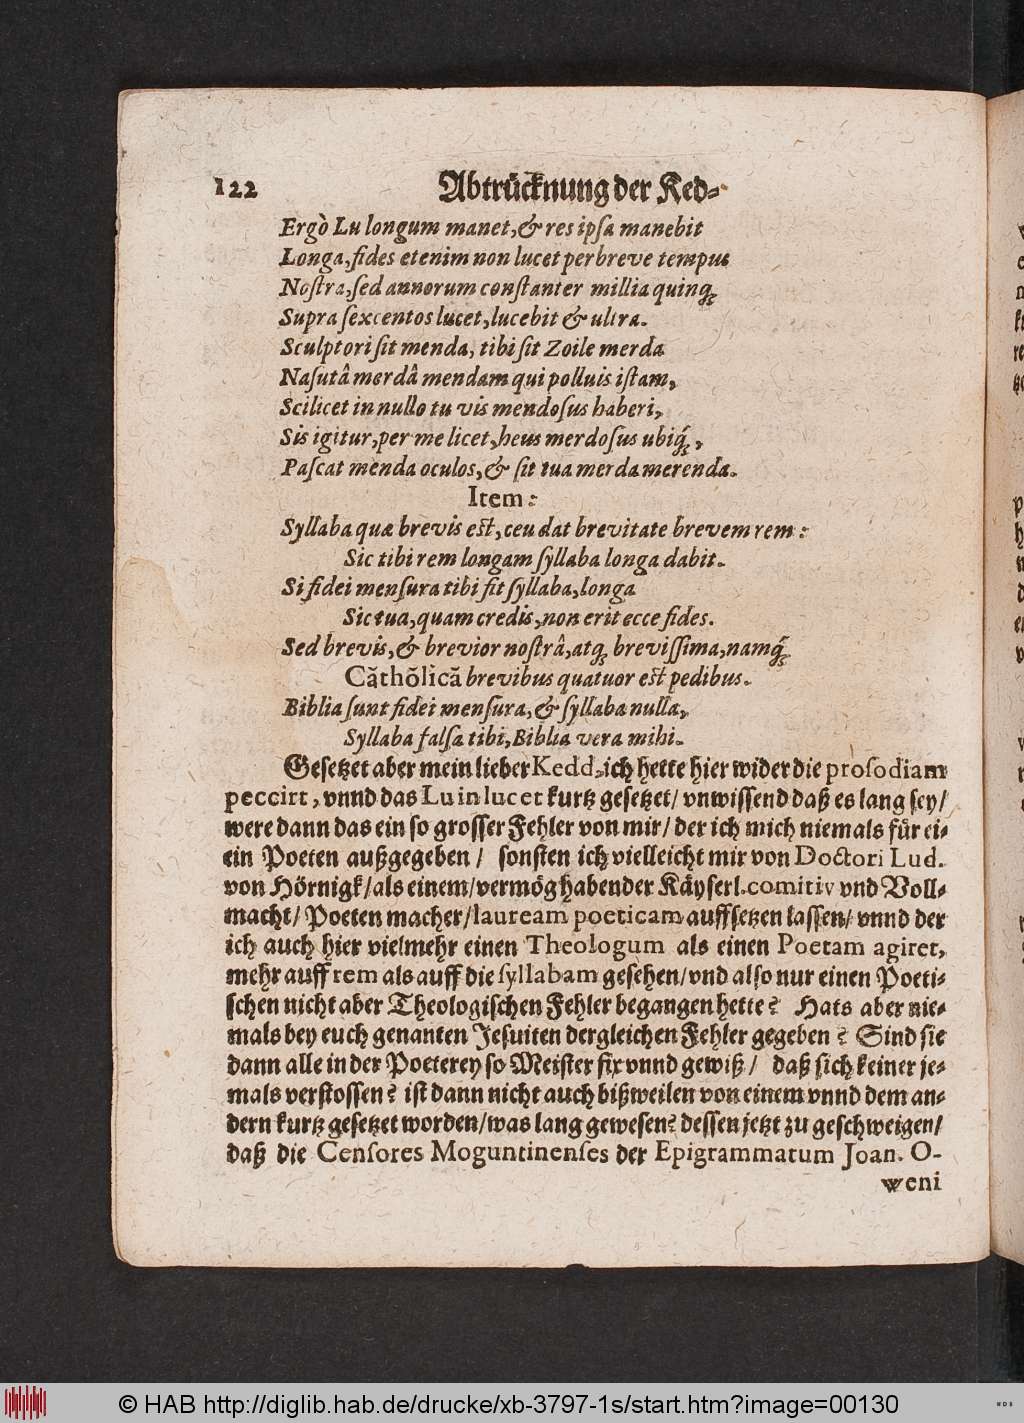 122 Abtrücknung der Ked-
Ergò Lu longum manet, & res ipsa manebit
Longa, fides etenim non lucet per breve tempus
Nostra, sed annorum constanter millia quinq́;
Supra sexcentos lucet, lucebit & ultra.
Sculptori sit menda, tibi sit Zoile merda
Nasutâ merdâ mendam qui polluis istam,
Scilicet in nullo tu vis mendosus haberi,
Sis igitur, per me licet, heus merdosus ubiq́;,
Pascat menda oculos, & sit tua merda merenda.
Item:
Syllaba quæ brevis est, ceu dat brevitate brevem rem:
Sic tibi rem longam syllaba longa dabit.
Si fidei mensura tibi sit syllaba, longa
Sic tua, quam credis, non erit ecce fides.
Sed brevis, & brevior nostrâ, atq; brevissima, namq́;
Căthŏlĭcă brevibus quatuor est pedibus.
Biblia sunt fidei mensura, & syllaba nulla,
Syllaba falsa tibi, Biblia vera mihi.
Gesetzet aber mein lieber Kedd, ich hette hier wider die prosodiam
peccirt, vnnd das Lu in lucet kurtz gesetzet/ vnwissend daß es lang sey/
were dann das ein so grosser Fehler von mir/ der ich mich niemals für ei-
ein Poeten außgegeben/ sonsten ich vielleicht mir von Doctori Lud.
von Hörnigk/ als einem/ vermög habender Käyserl. comitiv vnd Voll-
macht/ Poeten macher/ lauream poeticam auffsetzen lassen/ vnnd der
ich auch hier vielmehr einen Theologum als einen Poetam agiret,
mehr auff rem als auff die syllabam gesehen/ vnd also nur einen Poeti-
schen nicht aber Theologischen Fehler begangen hette? Hats aber nie-
mals bey euch genanten Jesuiten dergleichen Fehler gegeben? Sind sie
dann alle in der Poeterey so Meister fix vnnd gewiß/ daß sich keiner je-
mals verstossen? ist dann nicht auch bißweilen von einem vnnd dem an-
dern kurtz gesetzet worden/ was lang gewesen? dessen jetzt zu geschweigen/
daß die Censores Moguntinenses der Epigrammatum Joan. O-
weni
© HAB http://diglib.hab.de/drucke/xb-3797-1s/start.htm?image=00130